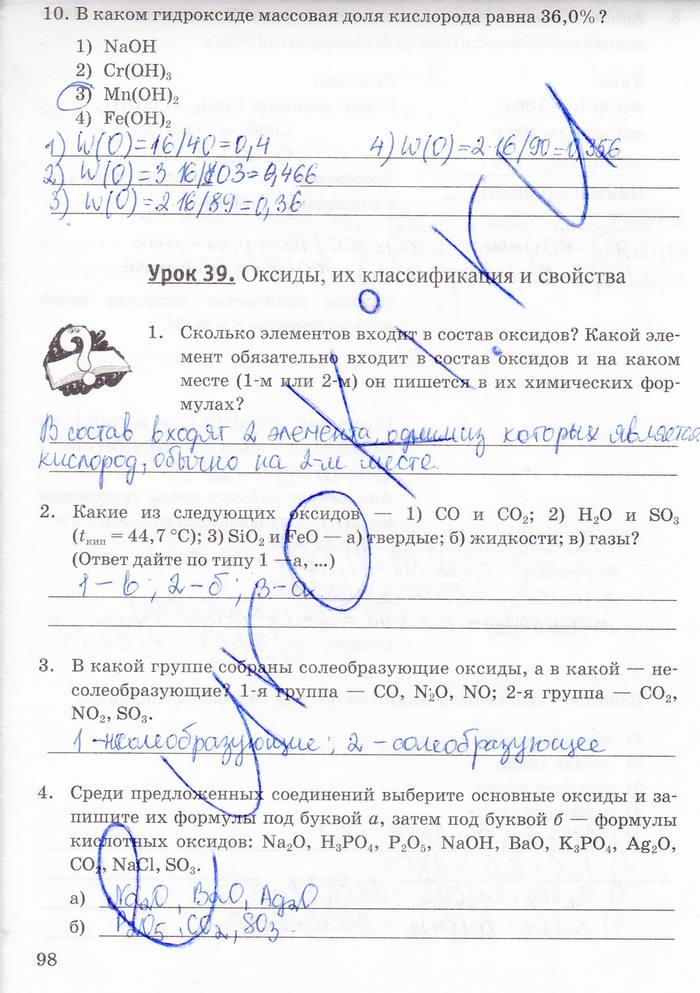 10. В каком гидроксиде массовая доля кислорода равна 36,0% ?
1) NaOH
2) Cr(OH)₃
3) Mn(OH)₂
4) Fe(OH)₂
1) W(O)=16/40=0,4 4) W(O)=2·16/90=0,356
2) W(O)=3·16/103=0,466
3) W(O)=2·16/89=0,36
Урок 39. Оксиды, их классификация и свойства
1. Сколько элементов входит в состав оксидов? Какой эле-
мент обязательно входит в состав оксидов и на каком
месте (1-м или 2-м) он пишется в их химических фор-
мулах?
В состав входят 2 элемента, одним из которых является
кислород, обычно на 2-м месте.
2. Какие из следующих оксидов — 1) CO и CO₂; 2) H₂O и SO₃
(tкип = 44,7 °C); 3) SiO₂ и FeO — а) твердые; б) жидкости; в) газы?
(Ответ дайте по типу 1 —а, ...)
1-в; 2-б; 3-а
3. В какой группе собраны солеобразующие оксиды, а в какой — не-
солеобразующие? 1-я группа — CO, N₂O, NO; 2-я группа — CO₂,
NO₂, SO₃.
1-несолеобразующие; 2-солеобразующее
4. Среди предложенных соединений выберите основные оксиды и за-
пишите их формулы под буквой а, затем под буквой б — формулы
кислотных оксидов: Na₂O, H₃PO₄, P₂O₅, NaOH, BaO, K₃PO₄, Ag₂O,
CO₂, NaCl, SO₃.
а) Na₂O, BaO, Ag₂O
б) P₂O₅, CO₂, SO₃
98